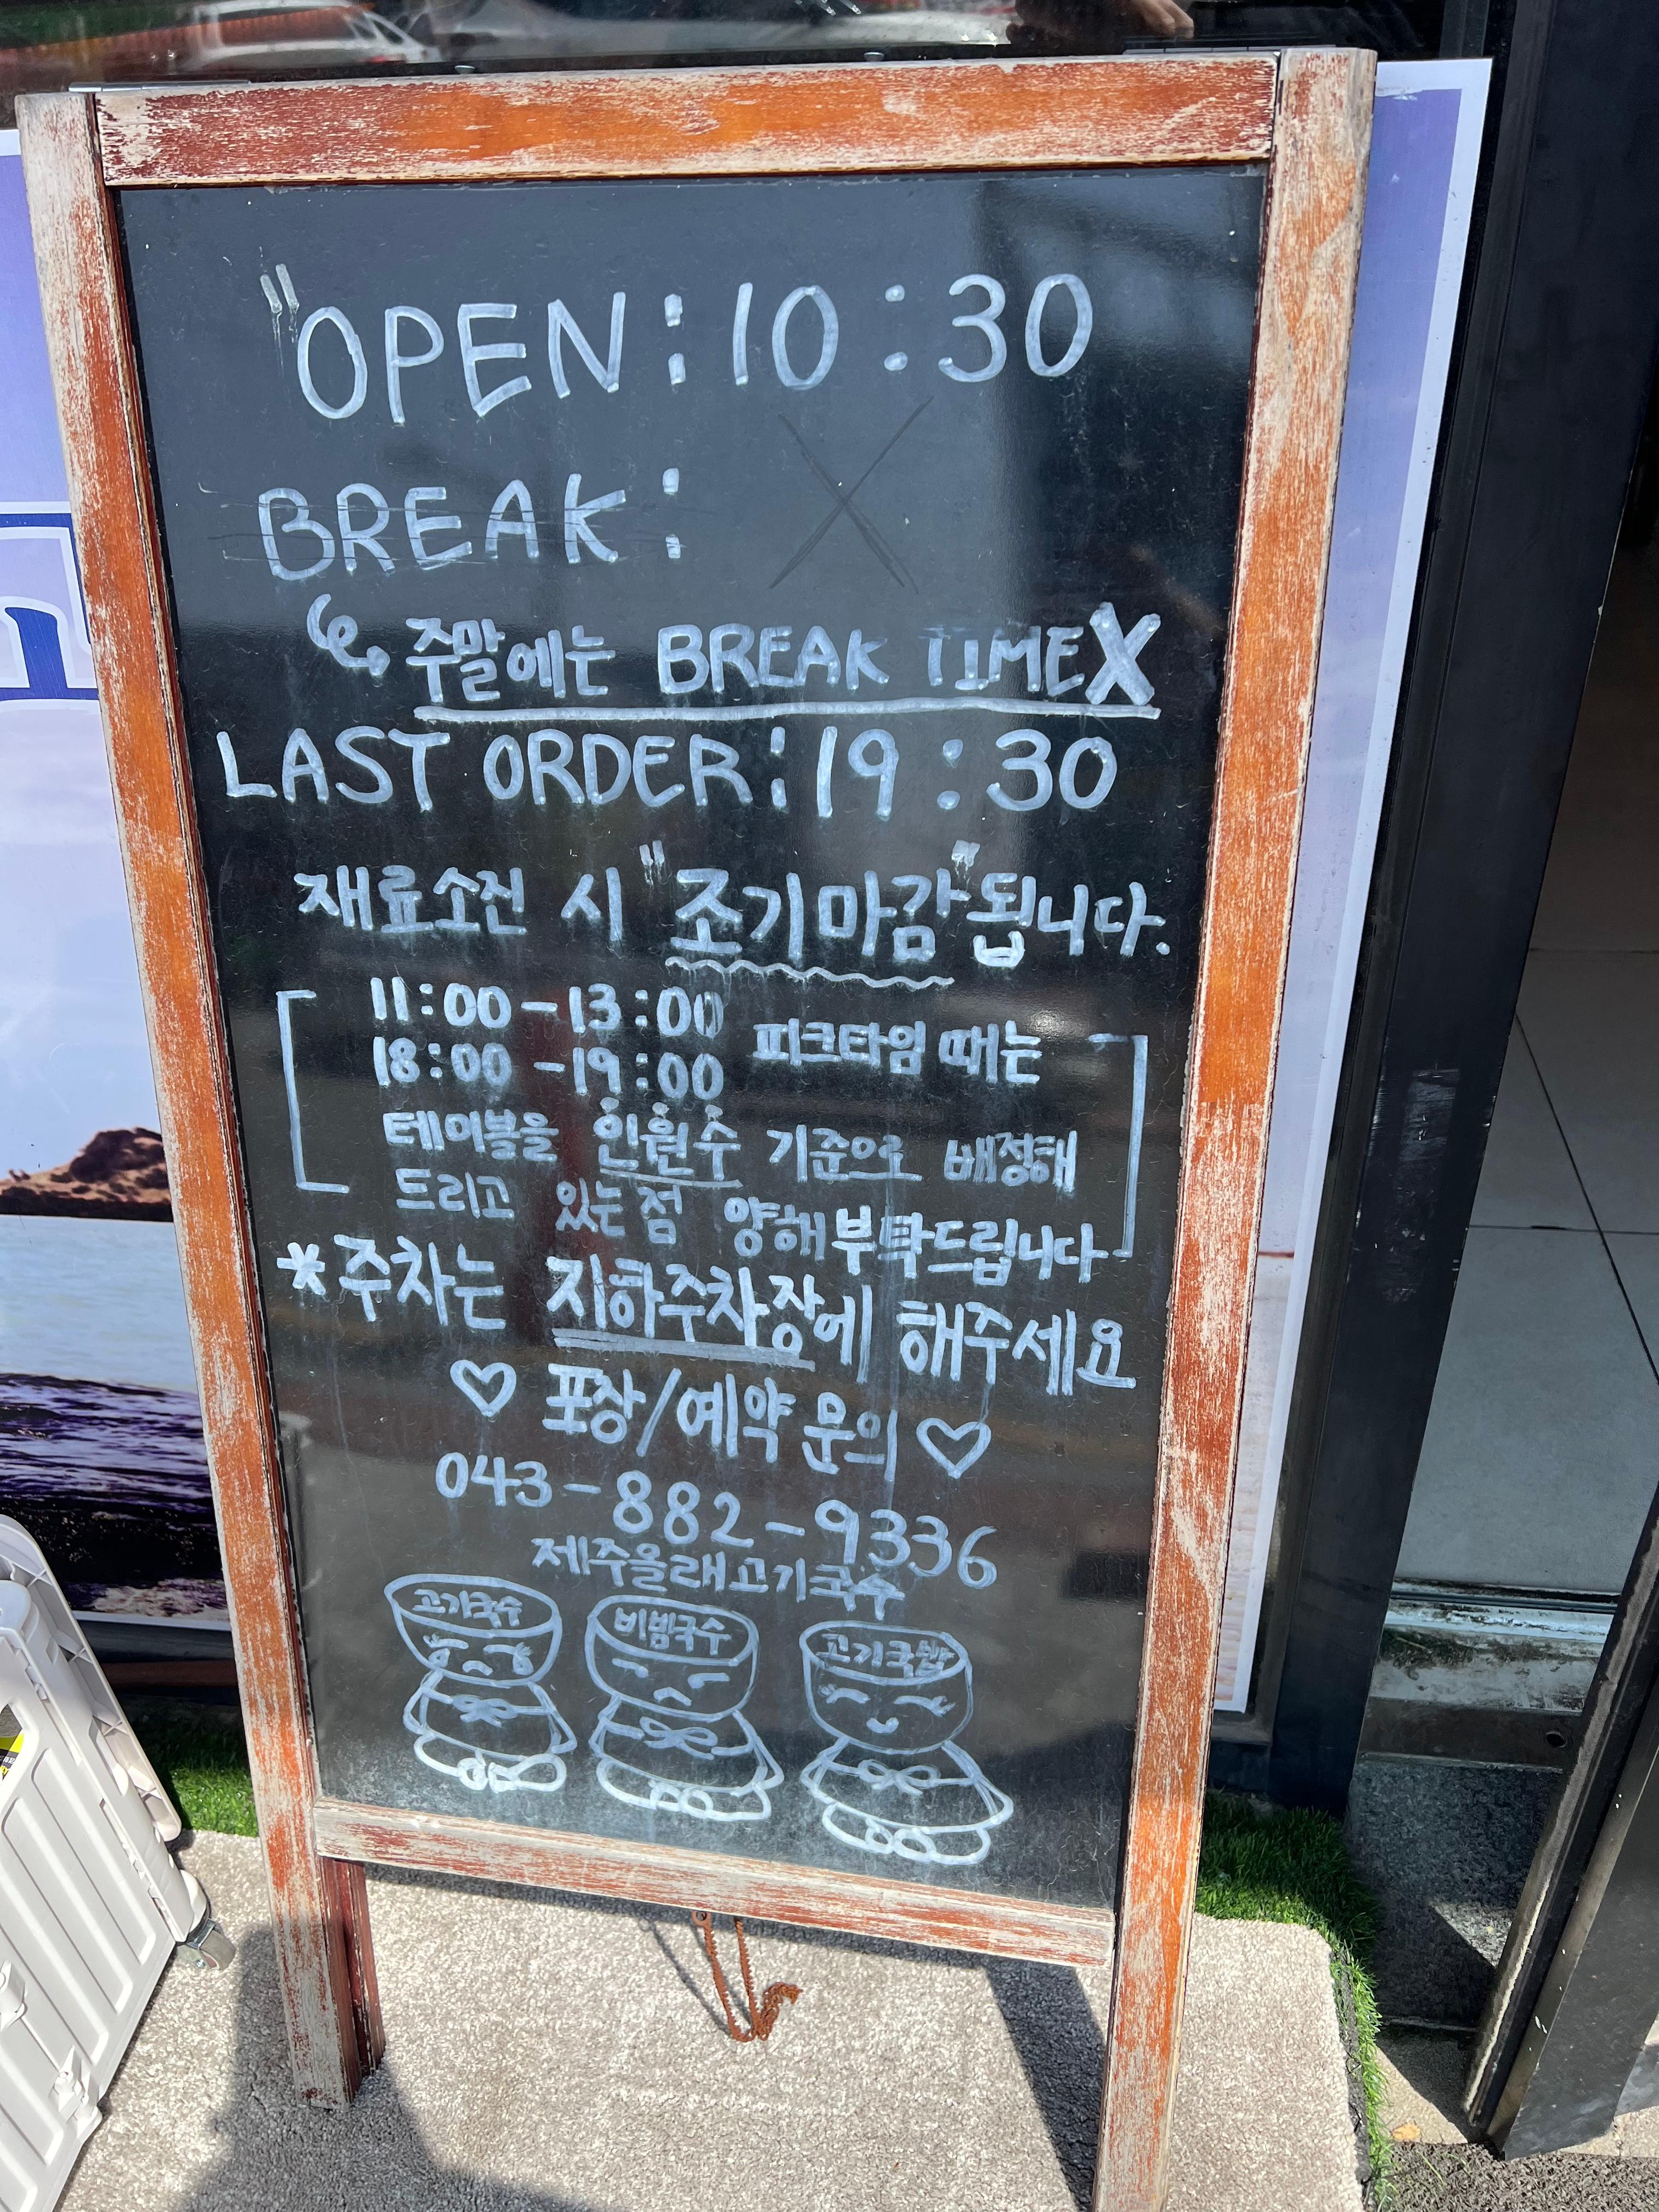 "OPEN : 10 : 30
BREAK : X
주말에는 BREAK TIME X
LAST ORDER : 19 : 30
재료소진 시 "조기마감"됩니다.
11:00 - 13:00
18:00 - 19:00 피크타임 때는
테이블을 인원수 기준으로 배정해
드리고 있는 점 양해부탁드립니다
*주차는 지하주차장에 해주세요
♡ 포장/예약 문의 ♡
043-882-9336
제주올래고기국수
고기국수 비빔국수 고기국밥